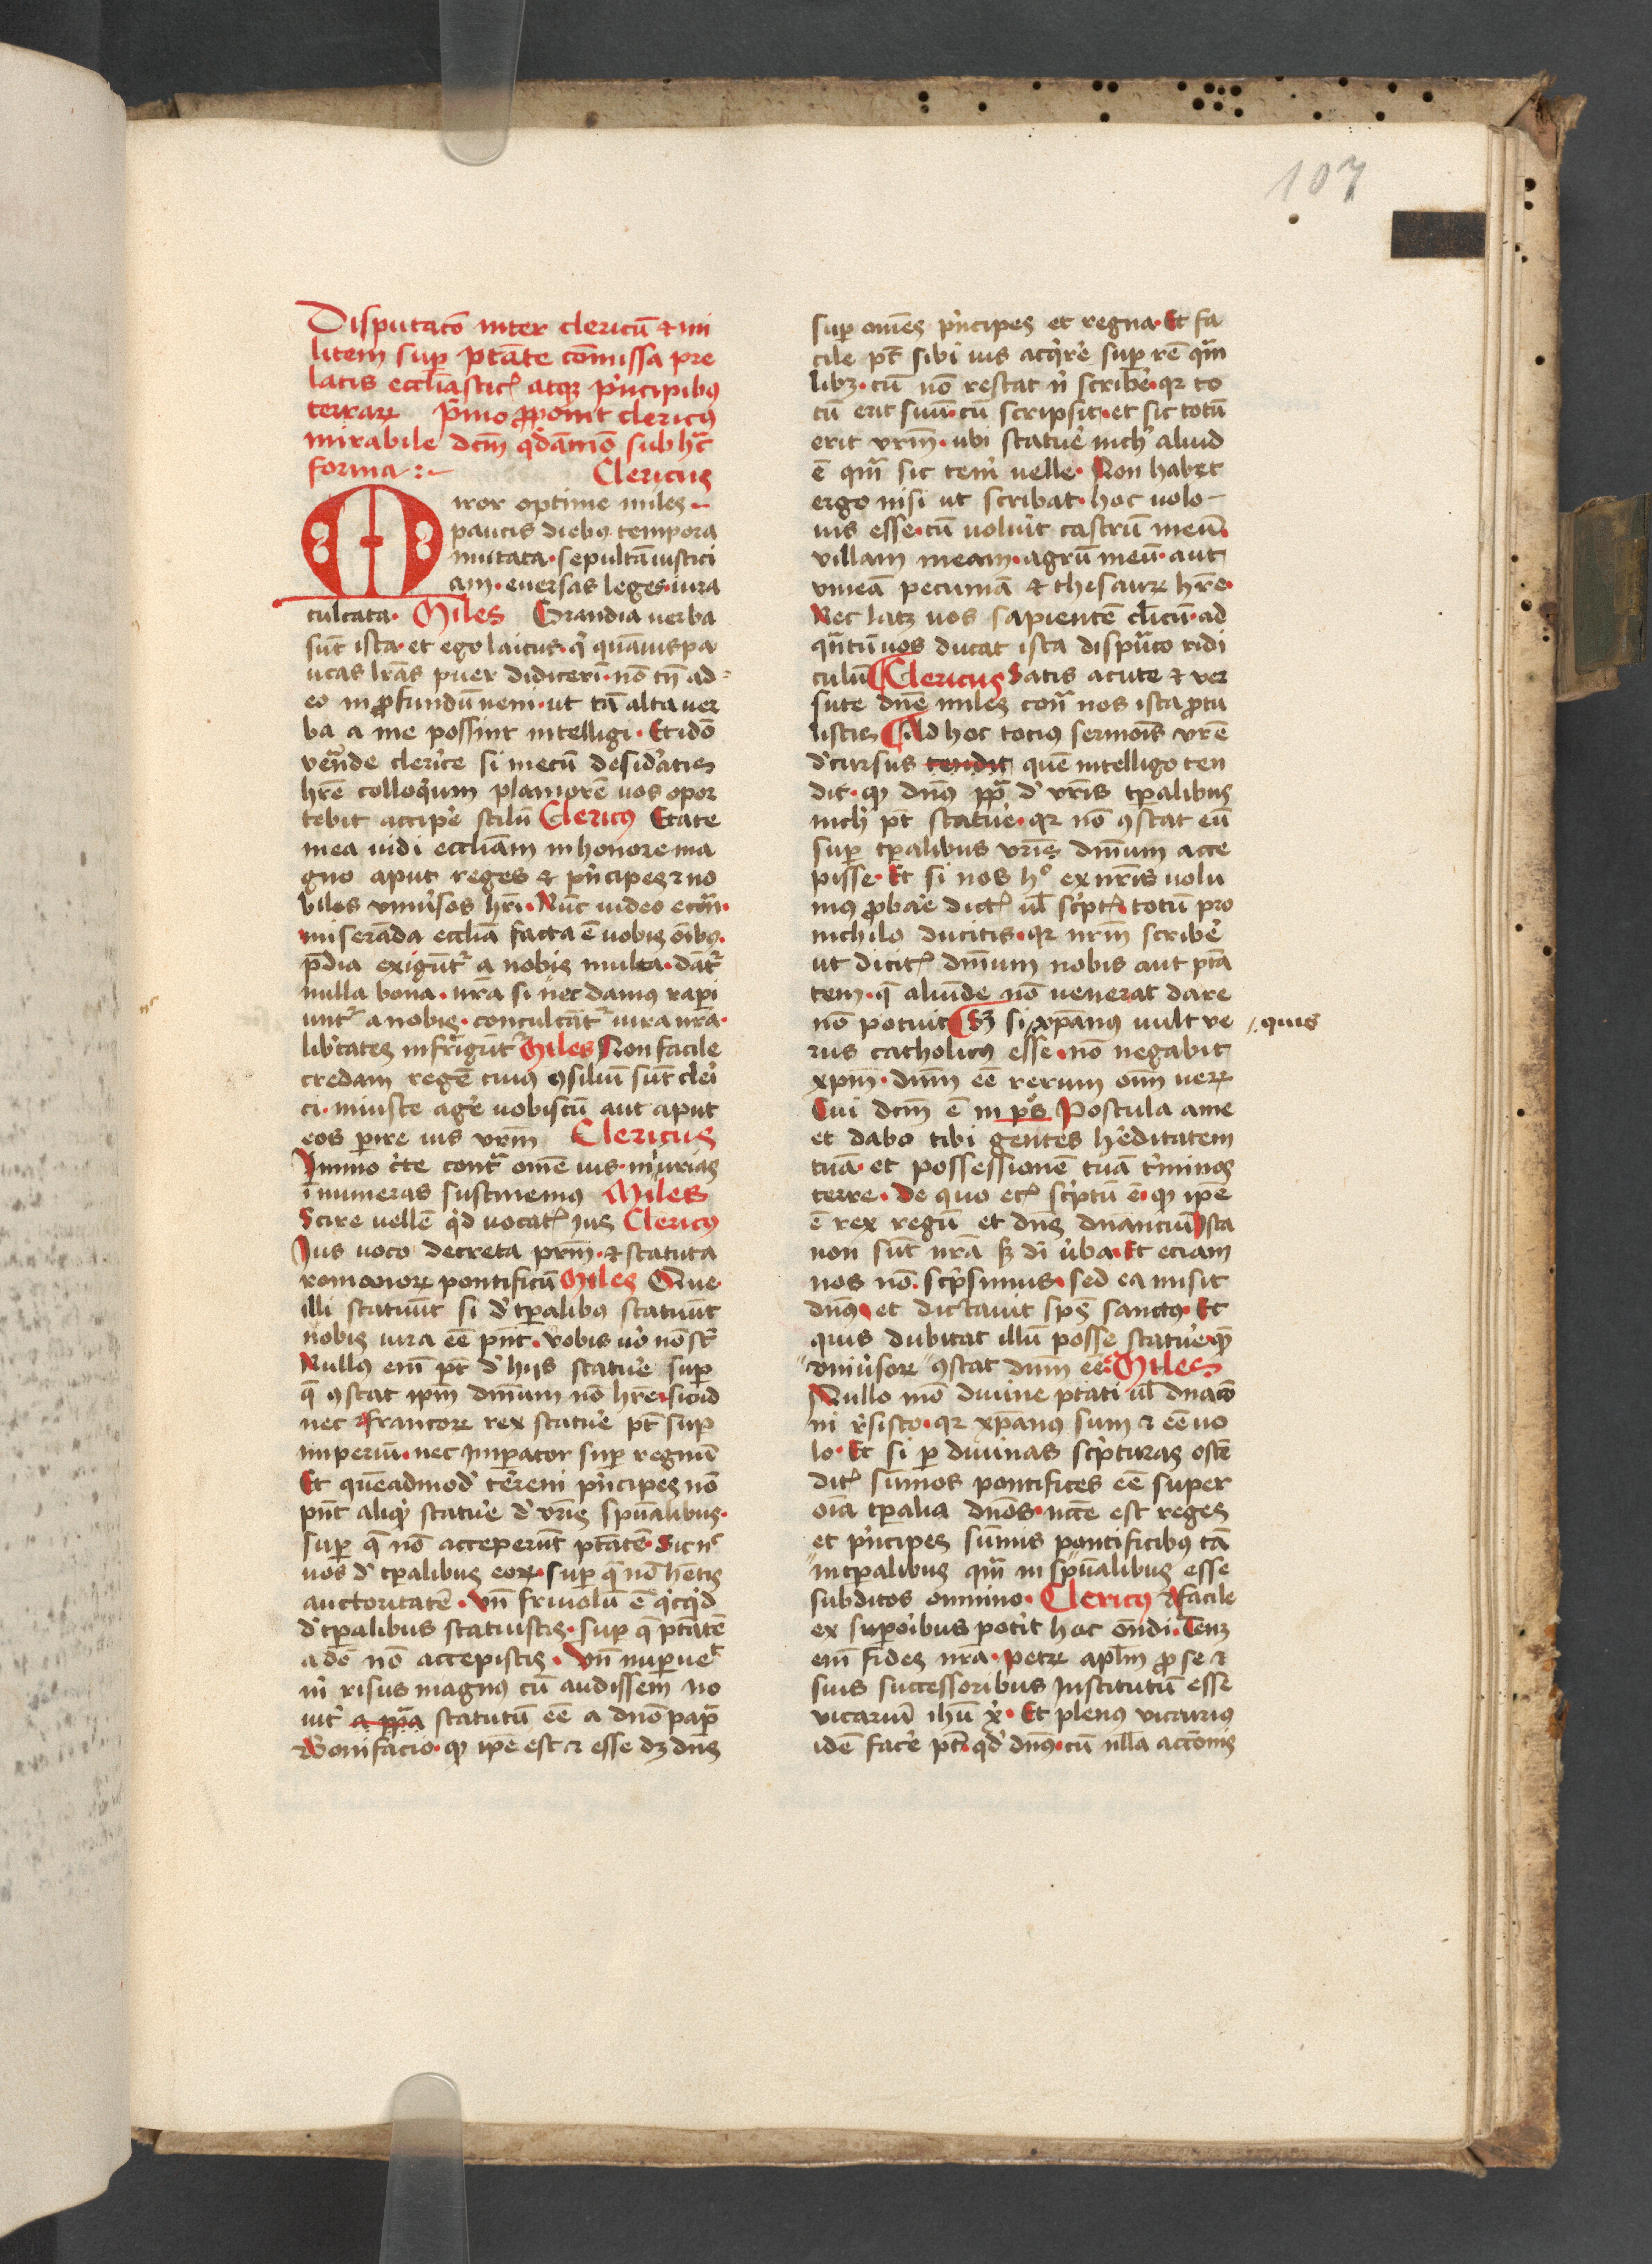 107
Disputacō inter clericū ⁊ mi
litem sup ptāte cōmissa pre
latis eccliastic⁊ atqꝫ pͥncipibꝰ
terraꝝ pͥmo ꝓponit clericꝰ
mirabile dcm̄ qͦdāmō sub hac
forma :~ Clericus
Miror optime miles
paucis diebꝰ tempora
mutata · sepultā iustici
am · euersas leges · iura
culcata · Miles Grandia uerba
sūt ista · et ego laicus · qͥ quāuis pa
ucas lrās puer didicerī · nō tn̄ ad=
eo in ꝓfundū ueni · ut tā alta uer
ba a me possint intelligi · Et idō
venͣnde clerice si mecū desid'atis
hr̄e colloqͥum planiorē uos opor
tebit accipe stilū Clericꝰ Etate
mea uidi eccliam in honore ma
gno aput reges ⁊ pͥncipes ⁊ no
biles vniu'sos hr̄i · Nūc uideo econͣ ·
miserāda ecclia facta ē uobis oībꝰ ·
pͣdia exigūt᷑ a nobis multa · dāt᷑
nulla bona · nr̄a si nec damꝰ rapi
unt᷑ a nobis · conculcāt᷑ iura nr̄a ·
lib'tates infrigūt᷑ Miles Non facile
credam regē cuiꝰ ꝯsiliū sūt cleri
ci · iniuste agͤre uobiscū aut aput
eos perire ius vrm̄ Clericus
Immo c'te contͣ omē ius · iniurias
īnumeras sustinemꝰ Miles
Scire uellē qͥd uocat᷑ ius Clericꝰ
Ius uoco decreta prm̄ · ⁊ statuta
romanoꝝ pontificū Miles Que
illi statuūt si d' tp̄alibꝰ statuūt
uobis iura eē pn̄t · vobis uͦ nō st᷑
Nullꝰ em̄ pt̄ d' hijs statue sup
q̄ ꝯstat ipm̄ dnīum nō hr̄e · sicud
nec francoꝝ rex statue pt̄ sup
imperiū · nec Imperator sup regnū
Et quēadmodͦ terreni pͥncipes nō
pn̄t aliqͥd statue d' vr̄is spūalibus ·
sup q̄ nō acceperūt ptātē · Sic nc̄
uos d' tp̄alibus eoꝝ · sup q̄ nō hētis
auctoritatē · Vn̄ friuolū ē qͥcqͥd
d' tp̄alibus statuistis · sup q̄ ptātē
a dō nō accepistis · Vn̄ nuper ue
nͥ risus magnꝰ cū audissem no
uit' a ppͣa statutū eē a dnō papͣ
Bonifacio · qꝫ ipē est ⁊ esse dꝫ dn̄s
sup omēs pͥncipes et regna · Et fa
cile pt̄ sibi ius acqͥre sup rē qͣm
libꝫ · cū nō restat nͥ scribe · qꝛ to
tū erit suū · cū scripsit · et sic totū
erit vrm̄ · ubi statue nich' aliud
ē qͣm sic tem̄ uelle · Non habet
ergo nisi ut scribat · hoc uolo
ius esse · cū uolu'it castrū meū ·
villam meam · agrū meū · aut
vineā pecuniā ⁊ thesauꝝ hr̄e ·
Nec latꝫ uos sapientē clīcū · ad
qͣntū uos ducat ista disputͣco ridi
culū Clericus Satis acute ⁊ ver
sute dn̄e miles conͣ nos ista ꝓtu
listis Ad hoc tociꝰ sermoīs vr̄e
d'cursus tendit quē intelligo ten
dit · qꝫ dnꝰ ppͣ d' vr̄is tp̄alibus
nich' pt̄ statue · qꝛ nō ꝯstat eū
sup tp̄alibus vr̄is dnīum acce
pisse · Et si nos hͦ ex nr̄is uolu
mꝰ ꝓbare dict᷑ ul̄ scͥpt᷑ · totū pro
nichilo ducitis · qꝛ nrm̄ scribe
ut dicit᷑ dnīum nobis aut ptā
tem · q̄ aliunde nō uenerat dare
nō potuit Sꝫ si xp̄anꝰ uult ve
quis
rus catholicꝰ esse · nō negabit
xpm̄ · dnm̄ eē rerum om̄ ueꝝ
Cui dcm̄ ē in ps̄ Postula a me
et dabo tibi gentes h'editatem
tuā · et possessionē tuā t'minos
terre · De quo et᷑ scͥptū ē · qꝫ ipē
ē rex regū et dn̄s dnanciū Ista
non sūt nr̄a sꝫ di u'ba · Et eciam
nos nō scͥpsimus · sed ea misit
dnꝰ et dictauit spc̄ sanctꝰ · Et
quis dubitat illū posse statue qͤ
vniu'soꝝ ꝯstat dnm̄ eē Miles
Nullo mō diuine ptati ul̄ dnaco
ni r'sisto · qꝛ xp̄anꝰ sum ⁊ eē uo
lo · Et si per diuinas scͥpturas ostē
dit᷑ sūmos pontifices eē super
oīa tp̄alia dnōs · nc̄ce est reges
et pͥncipes sūmis pontificibꝰ tā
in tp̄alibus qͣm in spūalibus esse
subditos omnino · Clericꝰ facile
ex supͥoribus pot'it hoc on̄di · Tenꝫ
em̄ fides nr̄a · petꝝ apl̄m ꝓ se ⁊
suis successoribus Institutū esse
vicariū ihū xͥ · Et plenꝰ vicarius
idē face pt̄ · qd' dnꝰ · cū nlla acconis